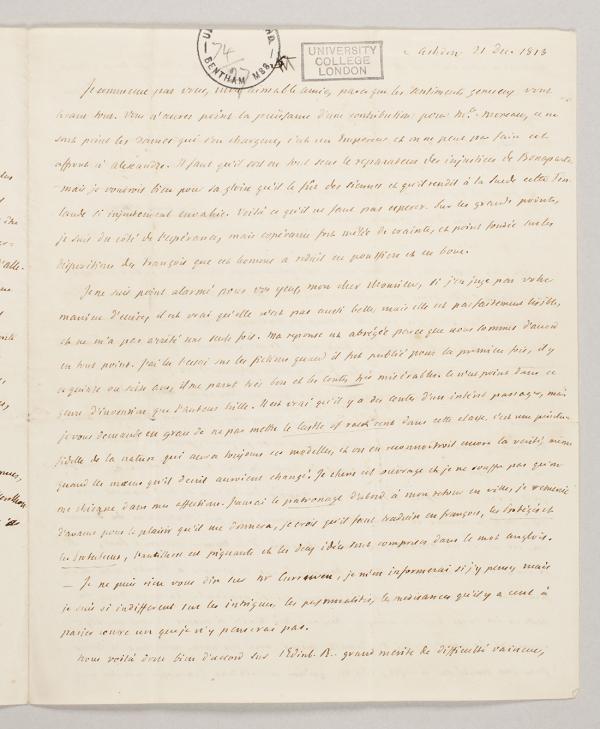 BENTHAM MSS.
74
UNIVERSITY
COLLEGE
LONDON
21 Dec. 1813
Je commence par vous, mon aimable amie, parce que les sentiments genereux vont
avant tout. Vous n'aurez point la jouissance d'une contribution pour Me. Moreau, ce ne
sont point les Dames qui s'en chargent, c'est un Empereur et on ne peut pas faire cet
affront à Alexandre. Il faut qu'il soit en tout sens le reparateur des injustices de Bonaparte
mais je voudrois bien pour sa gloire qu'il le fût des siennes et qu'il rendit à la Suede cette Fin-
lande si injustement envahie. Voilà ce qu'il ne faut pas esperer. Sur les grands points,
je suis du côté de l'espérance, mais espérance fort mêlée de crainte, et point fondée sur les
dispositions des françois que cet homme a reduit en poussiere et en boue.
Je ne suis point alarmé pour vos yeux, mon cher Monsieur, si j'en juge par votre
maniere d'ecrire, il est vrai qu'elle n'est pas aussi belle, mais elle est parfaitement lisible,
et ne m'a pas arrêté une seule fois. Ma reponse est abregée parce que nous sommes d'accord
en tout point. J'ai lu l'essai sur les fictions quand il fut publié pour la premiere fois, il y
a quinze ou seize ans, il me parut très bon et les contes très misérables. Ce n'est point dans ce
genre d'invention que l'auteur brille. Il est vrai qu'il y a des contes d'un intérêt passager, mais
je vous demande en grace de ne pas mettre le Castle of rack rent dans cette classe. C'est une peinture
fidelle de la nature qui aura toujours ses modelles, et on en reconnoitroit encore la verité, meme
quand les mœurs qu'il decrit auroient changé. Je cheris cet ouvrage et je ne souffre pas qu'on
me chicane dans mes affections. J'aurai le patronage d'abord à mon retour en ville, je remercie
d'avance pour le plaisir qu'il me donnera, je crois qu'il faut traduire en françois, les protégés et
les protecteurs, l'antithese est piquante et les deux idées sont comprises dans le mot anglois.
— Je ne puis rien vous dire sur Mr Curwen, je m'en informerai si j'y pense, mais
je suis si indifferent sur les intrigues, les personnalités, les medisances qu'il y a cent à
parier contre un que je n'y penserai pas.
Nous voilà donc bien d'accord sur l'Edinb. R. grand merite de difficulté vaincue,